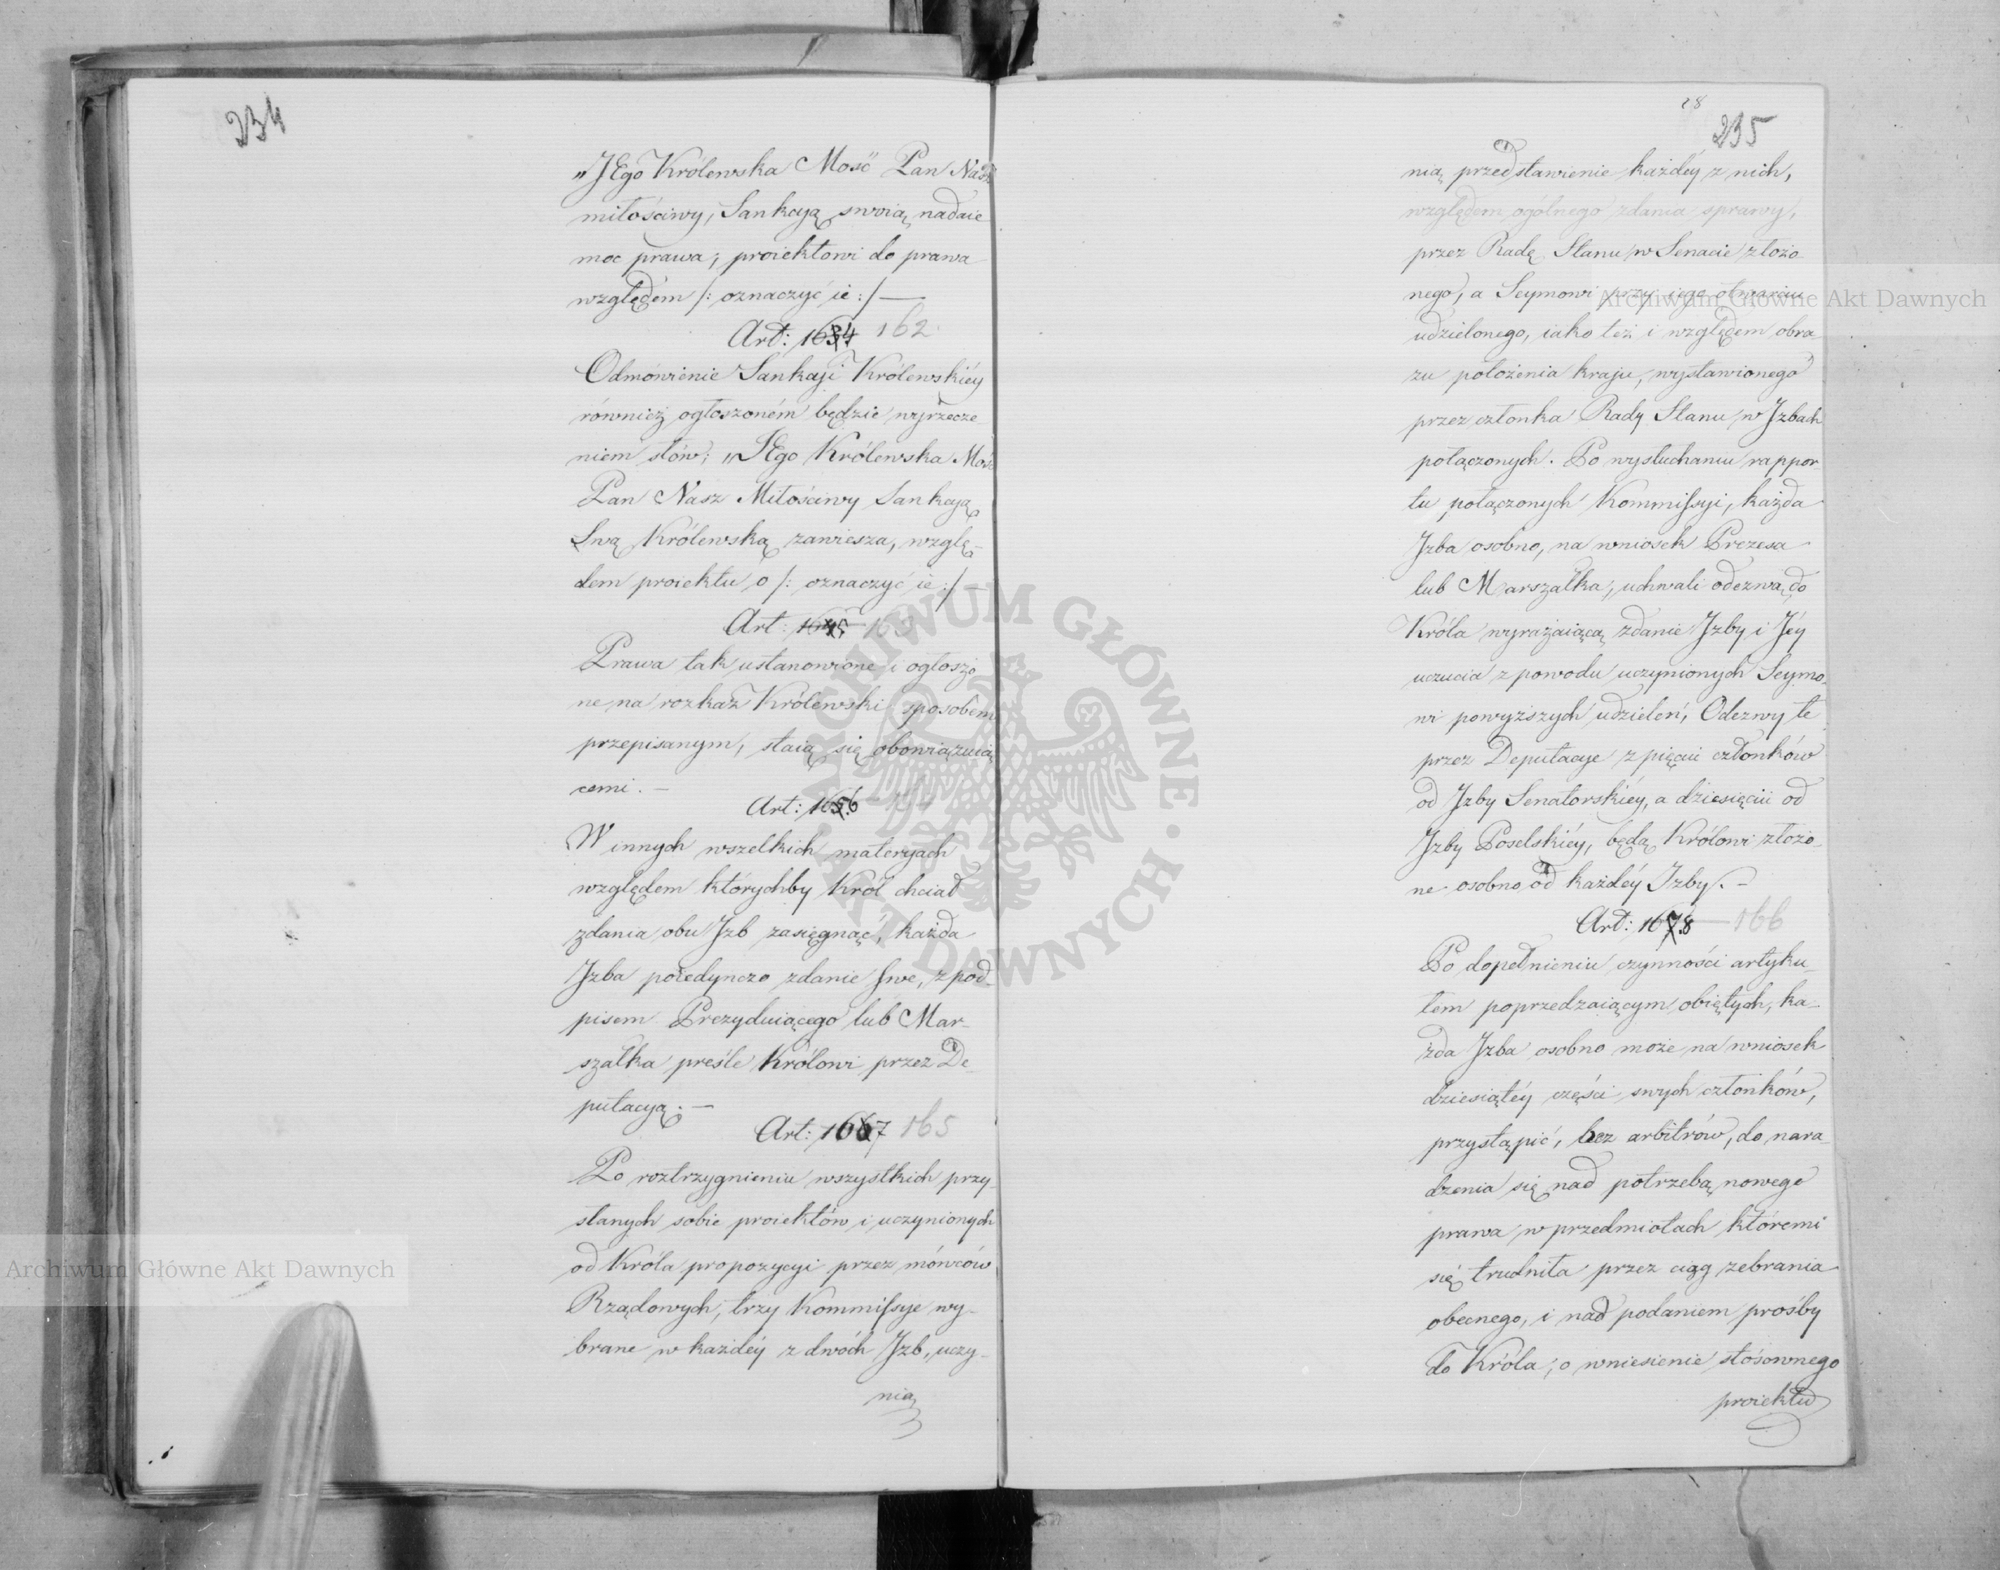 234
„JEgo Królewska Mość Pan Nasz
miłościwy, Sankcyą swoią nadaie
moc prawa, proiektowi do prawa
względem /: oznaczyć ie :/ —
Art: 1634 162
Odmówienie Sankcyi Królewskiéy
również ogłoszoném będzie wyrzecze
niem słów; „JEgo Królewska Mość
Pan Nasz Miłościwy Sankcyą
Swą Królewską zawiesza, wzglę-
dem proiektu o /: oznaczyć ie :/ —
Art: 1645 163
Prawa tak ustanowione i ogłoszo
ne na rozkaz Królewski sposobem
przepisanym, staią się obowiązuią
cemi. —
Art: 1656 164
W innych wszelkich materyach
względem którychby Król chciał
zdania obu Jzb zasięgnąć, każda
Jzba poiedynczo zdanie swe, z pod-
pisem Prezyduiącego lub Mar-
szałka preśle Królowi przez De-
putacyą. —
Art: 1667 165
Po roztrzygnieniu wszystkich przy-
słanych sobie proiektów i uczynionych
od Króla propozycyi przez mówców
Rządowych, trzy Kommissye wy-
brane w każdéy z dwóch Jzb, uczy-
nią
28
235
nią przedstawienie każdéy z nich,
względem ogólnego zdania sprawy,
przez Radę Stanu w Senacie złożo
nego, a Seymowi przy iego otwarciu
udzielonego, iako też i względem obra
zu położenia kraju, wystawionego
przez członka Rady Stanu w Jzbach
połączonych. Po wysłuchaniu rappor-
tu połączonych Kommissyi, każda
Jzba osobno, na wniosek Prezesa
lub Marszałka, uchwali odezwę do
Króla wyrażaiącą zdanie Jzby i Jéy
uczucia z powodu uczynionych Seymo-
wi powyższych udzieleń, Odezwy te
przez Deputacye z pięciu członków
od Jzby Senatorskiéy, a dziesięciu od
Jzby Poselskiéy, będą Królowi złożo-
ne osobno od każdéy Jzby. —
Art: 1678 — 166
Po dopełnieniu czynności artyku-
łem poprzedzaiącym obiętych, ka-
żda Jzba osobno może na wniosek
dziesiątéy części swych członków,
przystąpić, bez arbitrów, do nara-
dzenia się nad potrzebą nowego
prawa w przedmiotach któremi
się trudniła przez ciąg zebrania
obecnego, i nad podaniem prośby
do Króla, o wniesienie stósownego
proiektu
Archiwum Główne Akt Dawnych
Archiwum Główne Akt Dawnych
ARCHIWUM GŁÓWNE AKT DAWNYCH